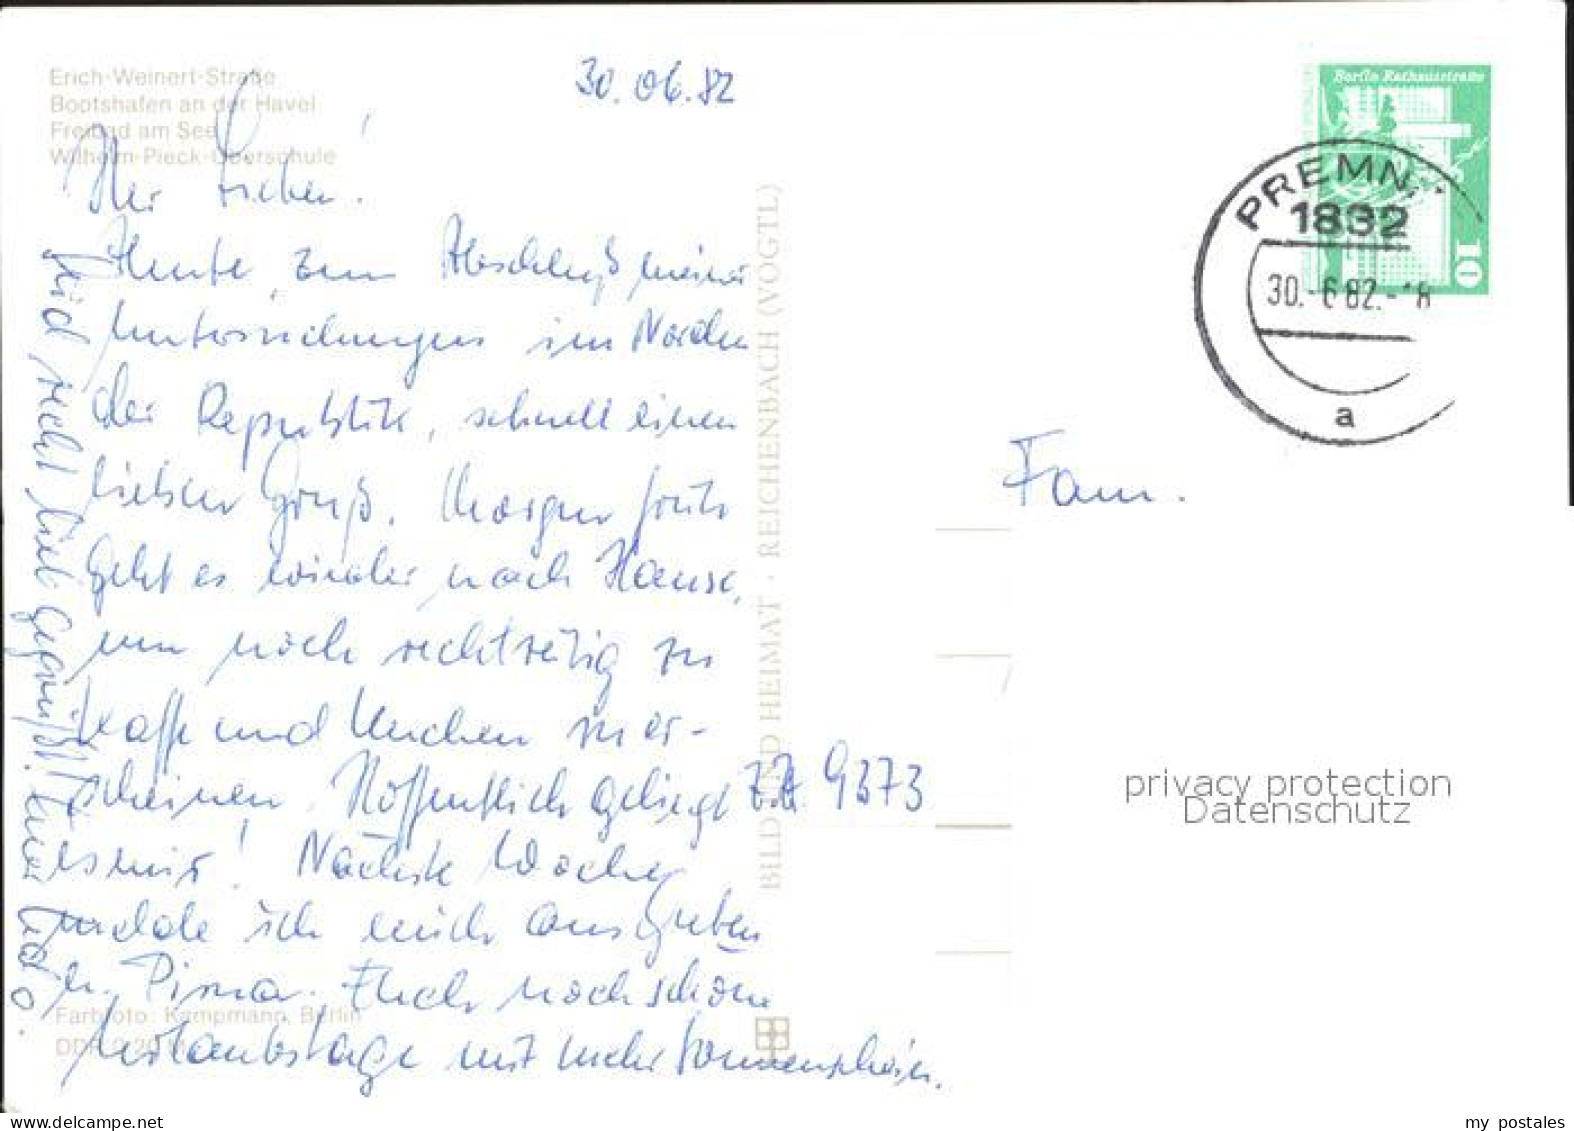 Erich-Weinert-Straße
Bootshafen an der Havel
Freibad am See
Wilhelm-Pieck-Oberschule
30.06.82
Ihr Lieben!
Heute, zum Abschluß meiner
Untersuchungen im Norden
der Republik, schnell einen
lieben Gruß. Morgen früh
geht es wieder nach Hause,
um noch rechtzeitig zu
Kaffe und Kuchen zu er-
scheinen. Hoffentlich gelingt
es mir! Nächste Woche
melde ich mich aus
n. Pirna. Euch noch schöne
Urlaubstage mit mehr Sonnenschein.
Seid recht lieb gegrüßt! Euer Udo.
Z.Z. 9373
BILD UND HEIMAT · REICHENBACH (VOGTL)
Farbfoto: Kampmann, Berlin
Berlin Rathausstraße
10
PREMN
1832
30.-6.82.-18
a
Fam.
privacy protection
Datenschutz
my postales